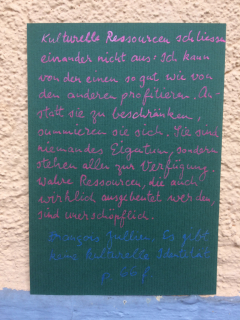 Kulturelle Ressourcen schliessen
einander nicht aus. Ich kann
von den einen so gut wie von
den anderen profitieren. An-
statt sie zu beschränken,
summieren sie sich. Sie sind
niemandes Eigentum, sondern
stehen allen zur Verfügung.
Wahre Ressourcen, die auch
wirklich ausgebeutet werden,
sind unerschöpflich.
François Jullien, Es gibt
keine kulturelle Identität
p. 66f